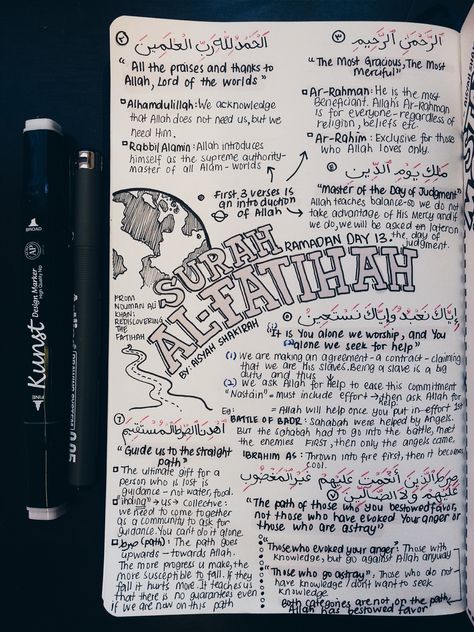 ٢ الحمد لله رب العلمين
" All the praises and thanks to
Allah, Lord of the worlds "
Alhamdulillah: We acknowledge
that Allah does not need us, but we
need Him.
Rabbil Alamin: Allah introduces
himself as the supreme authority-
master of all Alam - worlds
First 3 verses is
an introduction
of Allah
٣ الرحمن الرحيم
"The Most Gracious, The Most
Merciful"
Ar-Rahman: He is the most
Beneficiant. Allah's Ar-Rahman
is for everyone - regardless of
religion, beliefs etc
Ar-Rahim: Exclusive for those
who Allah loves only.
ملك يوم الدين
"Master of the Day of Judgment"
Allah teaches balance - so we do not
take advantage of His Mercy and if
we do, we will be asked on later on
the day of
judgment.
RAMADAN DAY 13.
SURAH
AL-FATIHAH
BY: AISYAH SHAKIRAH
FROM
NOUMAN ALI
KHAN:
REDISCOVERING
THE
FATIHAH
إياك نعبد وإياك نستعين
"It is You alone we worship, and You
alone we seek for help"
(1) We are making an agreement - a contract - claiming
that we are His slaves. Being a slave is a big
duty and thus
(2) We ask Allah for Help to ease this commitment
"Nastain" = must include effort → then ask Allah for
help
Eg: = Allah will help once you put in effort 1st
BATTLE OF BADR: Sahabah were helped by Angels.
But the sahabah had to go into the battle, meet
the enemies FIRST, then only the angels came.
IBRAHIM AS: Thrown into fire first, then it became
cool.
اهدنا الصراط المستقيم
"Guide us to the straight
path"
The ultimate gift for a
person who is lost is
guidance - not water, food.
"ihdina" → us → collective:
we need to come together
as a community to ask for
guidance. You can't do it alone
صراط (path): The path goes
upwards - towards Allah.
The more progress u make, the
more susceptible to fall. If they
fall it hurts more. It teaches us
that there is no guarantees even
if we are now on this path
صرط الذين أنعمت عليهم غير المغضوب
عليهم ولا الضالين
"The path of those who you bestowed favor,
not those who have evoked Your anger or
those who are astray"
"Those who evoked your anger": Those with
knowledge, but go against Allah anyway
"Those who go astray": Those who do not
have knowledge / don't want to seek
knowledge
Both categories are not on the path
Allah has bestowed favor
BROAD
Kunst
Design Marker
FINE
0.05